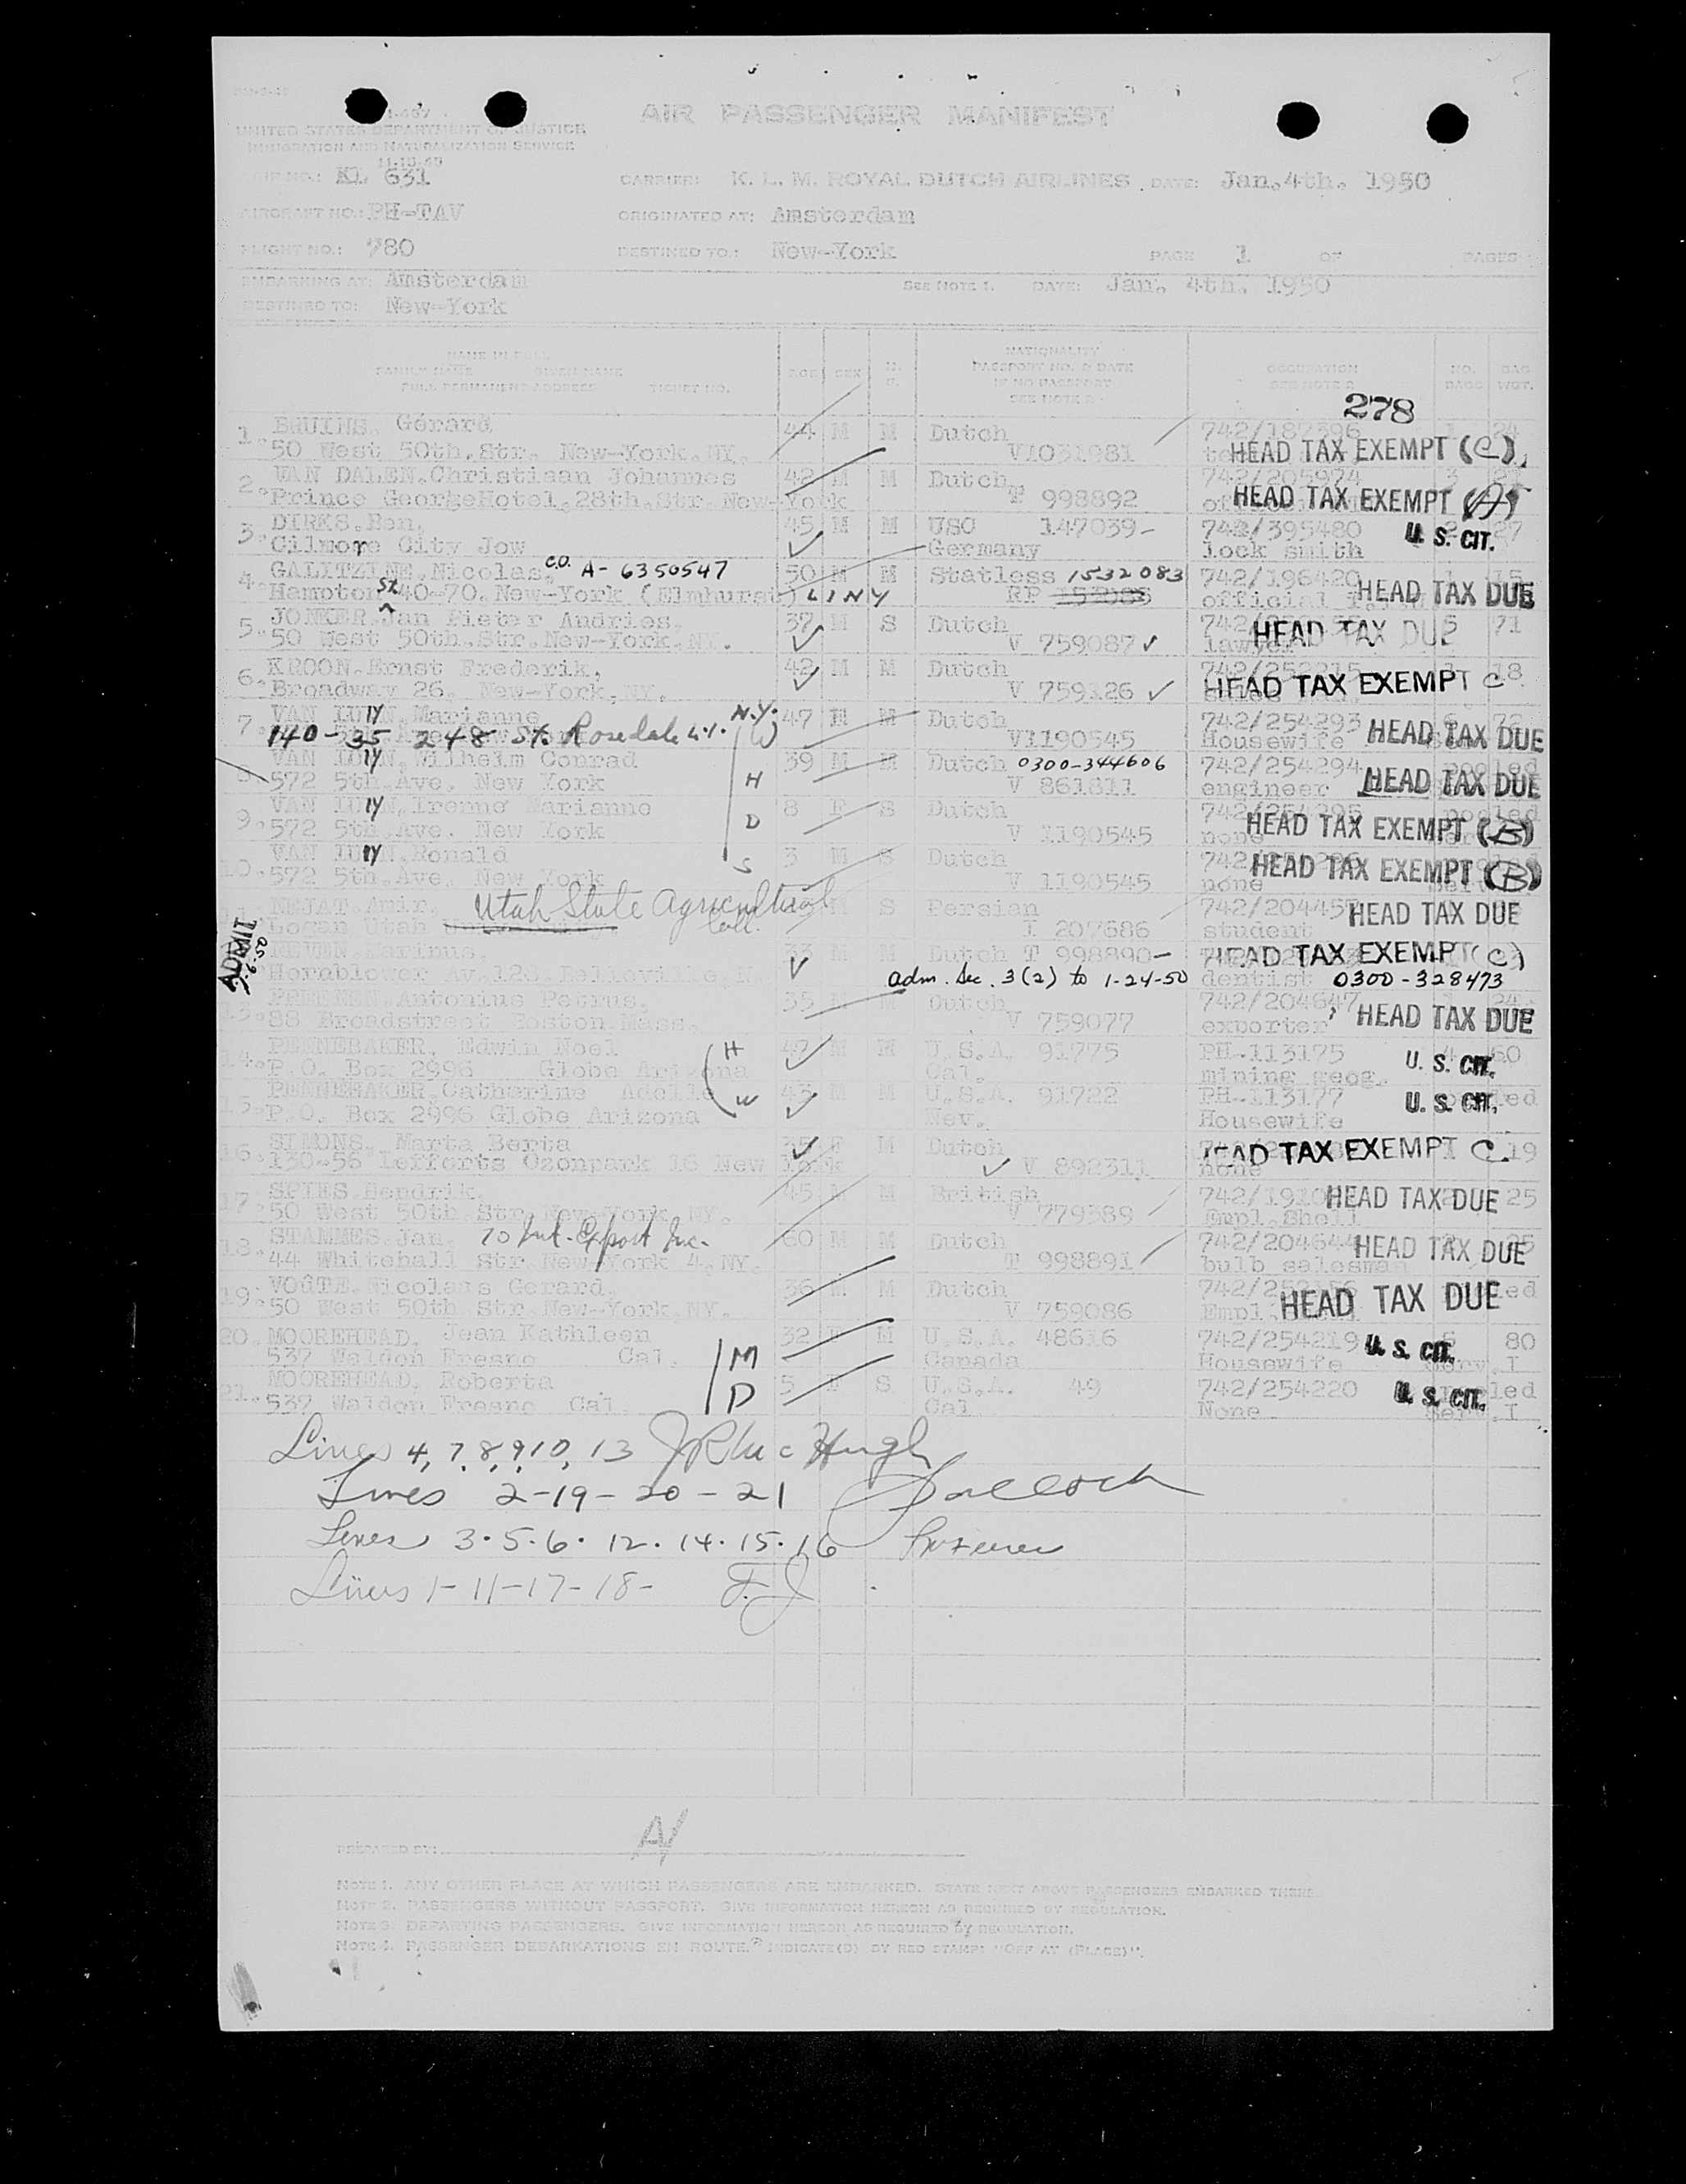 AIR PASSENGER MANIFEST
UNITED STATES DEPARTMENT OF JUSTICE
IMMIGRATION AND NATURALIZATION SERVICE
11-10-49
KL 631 CARRIER: K. L. M. ROYAL DUTCH AIRLINES DATE: Jan. 4th. 1950
AIRCRAFT NO.: PH-TAV ORIGINATED AT: Amsterdam
FLIGHT NO.: 780 DESTINED TO: New-York PAGE 1 OF PAGES
EMBARKING AT: Amsterdam SEE NOTE 1. DATE: Jan. 4th. 1950
DESTINED TO: New-York
NAME IN FULL
FAMILY NAME GIVEN NAME
FULL PERMANENT ADDRESS TICKET NO. AGE SEX NATIONALITY
PASSPORT NO. & DATE
IF NO PASSPORT
SEE NOTE 2 OCCUPATION NO. BAGS BAG. WGT.
278
1. BRUINS. Gerard 44 M M Dutch 742/187396 1 24
50 West 50th.Str. New-York.NY. V1031981 HEAD TAX EXEMPT (C)
2. VAN DALEN.Christiaan Johannes 42 M M Dutch 742/205974
Prince GeorgeHotel.28th.Str.New-York T 998892 HEAD TAX EXEMPT (A)
3. DIRKS.Ben. 45 M M USC 147039- 742/395480 27 U. S. CIT.
Gilmore City Jow Germany lock smith
4. GALITZINE.Nicolas. C.O. A- 6350547 50 M M Statless 1532083 742/196420 15
Hampton St. 40-70.New-York (Elmhurst) L I N Y RP official HEAD TAX DUE
5. JONKER.Jan Pieter Andries. 37 M S Dutch 71
50 West 50th.Str.New-York.NY. V 759087 ✓ lawyer HEAD TAX DUE
6. KROON.Ernst Frederik, 42 M M Dutch 742/252215 1 18
Broadway 26. New-York,NY. V 759126 ✓ HEAD TAX EXEMPT C
7. VAN Marianne N.Y. 47 M Dutch 742/254293 72
140-35 248 St. Rosedale L.I. W V1190545 Housewife HEAD TAX DUE
8. VAN Wilhelm Conrad 39 M M Dutch 0300-344606 742/254294 pooled
572 5th.Ave. New York H V 861811 engineer HEAD TAX DUE
9. VAN Irenne Marianne 8 F S Dutch 742/254295 pooled
572 5th.Ave. New York D V 1190545 none HEAD TAX EXEMPT (B)
10. VAN Ronald 3 M S Dutch
572 5th.Ave. New York S V 1190545 none HEAD TAX EXEMPT (B)
NEJAT.Amir. Utah State Agricultural Coll. M S Persian 742/204457
Logan Utah T 207686 student HEAD TAX DUE
ADMIT
NEVEN.Marinus. 33 M M Dutch T 998890- HEAD TAX EXEMPT (C)
Hornblower Av.123.Belleville. adm. Sec. 3(2) to 1-24-50 dentist 0300-328473
13. Antonius Petrus. 35 M Dutch 742/204647 24
88 Broadstreet Boston Mass. V 759077 exporter HEAD TAX DUE
14. PENNEBAKER, Edwin Noel H 47 M M U.S.A. 91775 PH.113175 4 60
P.O. Box 2996 Globe Arizona Cal. mining geog. U. S. CIT.
15. PENNEBAKER.Catherine Adelle W 43 M U.S.A. 91722 PH.113177 pooled
P.O. Box 2996 Globe Arizona Nev. Housewife U. S. CIT.
16. SIMONS. Marta Berta 35 F M Dutch 19
130-56 Lefforts Ozonpark 16 New York ✓ V 892311 none HEAD TAX EXEMPT C.
17. SPIES.Hendrik. 45 M M British 25
50 West 50th.Str.New-York.NY. V 779389 Empl.Shell HEAD TAX DUE
18. STAMMES.Jan. 60 M M Dutch 742/204644 25
44 Whitehall Str.New-York 4.NY. T 998891 bulb salesman HEAD TAX DUE
19. VOÛTE.Nicolaas Gerard. 36 M M Dutch pooled
50 West 50th.Str.New-York.NY. V 759086 Empl. HEAD TAX DUE
20. MOOREHEAD. Jean Kathleen 32 F M U.S.A. 48616 742/254219 80
537 Waldon Fresno Cal. M Canada Housewife U. S. CIT. Serv.I
21. MOOREHEAD. Roberta 5 F S U.S.A. 49 742/254220 pooled
537 Waldon Fresno Cal. D Cal None. U. S. CIT. Serv.I
Lines 4, 7, 8, 9, 10, 13 J R McHugh
Lines 2-19-20-21
Lines 3·5·6·12·14·15·16
Lines 1-11-17-18- F.J
PREPARED BY:
NOTE 1. ANY OTHER PLACE AT WHICH PASSENGERS ARE EMBARKED. STATE NEXT ABOVE PASSENGERS EMBARKED THERE.
NOTE 2. PASSENGERS WITHOUT PASSPORT. GIVE INFORMATION HEREON AS REQUIRED BY REGULATION.
NOTE 3. DEPARTING PASSENGERS. GIVE INFORMATION HEREON AS REQUIRED BY REGULATION.
NOTE 4. PASSENGER DEBARKATIONS EN ROUTE. INDICATE(D) BY RED STAMP: "OFF AT (PLACE)".